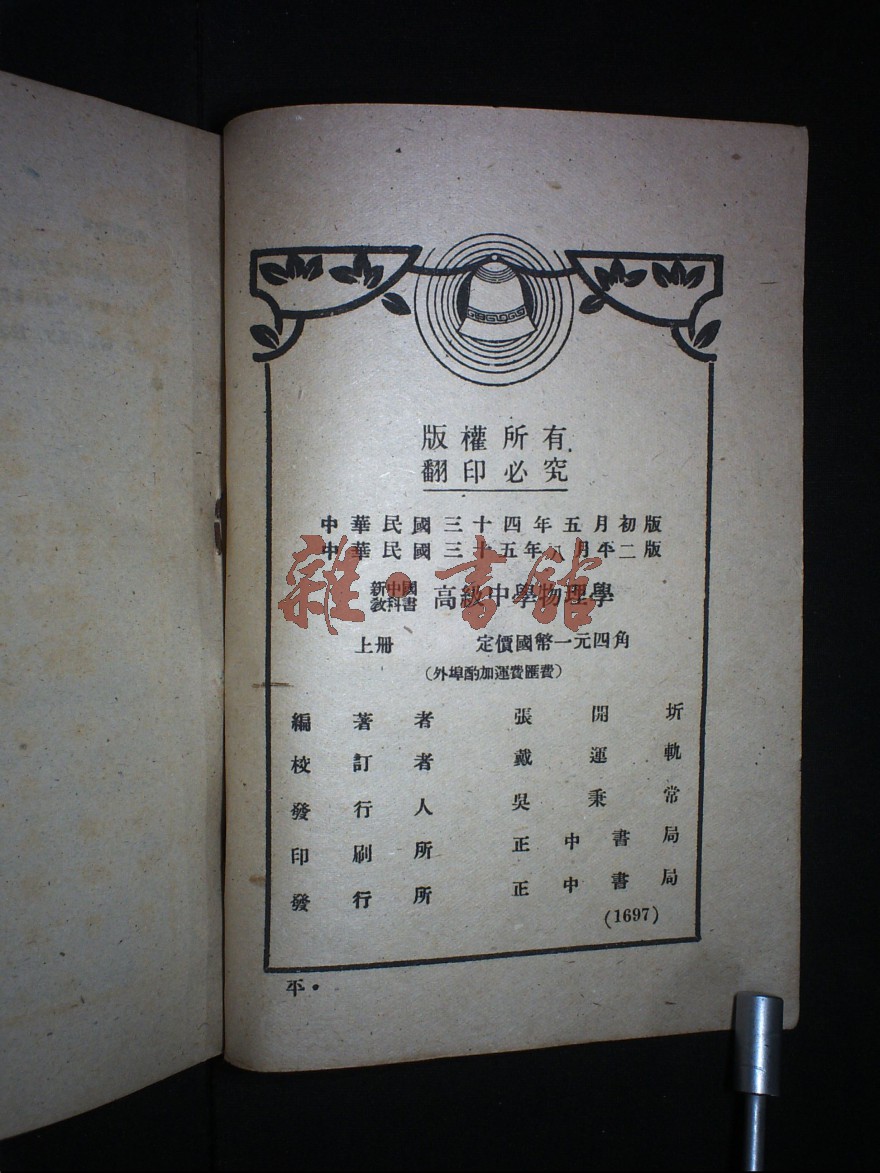 版權所有
翻印必究
中華民國三十四年五月初版
中華民國三十五年八月平二版
新中國
教科書
高級中學物理學
上册 定價國幣一元四角
(外埠酌加運費匯費)
編著者 張開圻
校訂者 戴運軌
發行人 吳秉常
印刷所 正中書局
發行所 正中書局
(1697)
平.
雜·書館